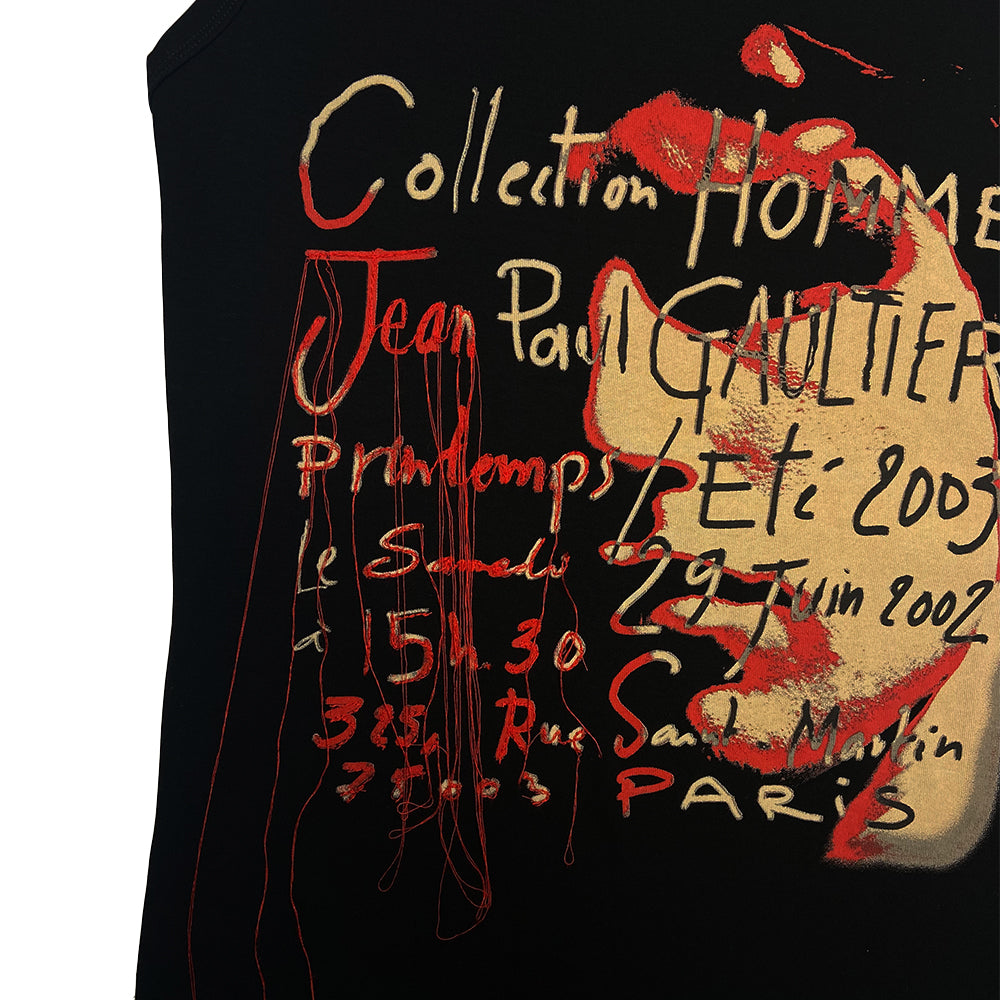 Collection HOMME
Jean Paul GAULTIER
Printemps / Eté 2003
Le Samedi 29 Juin 2002
à 15h.30
325, Rue Saint. Martin
75003 PARiS